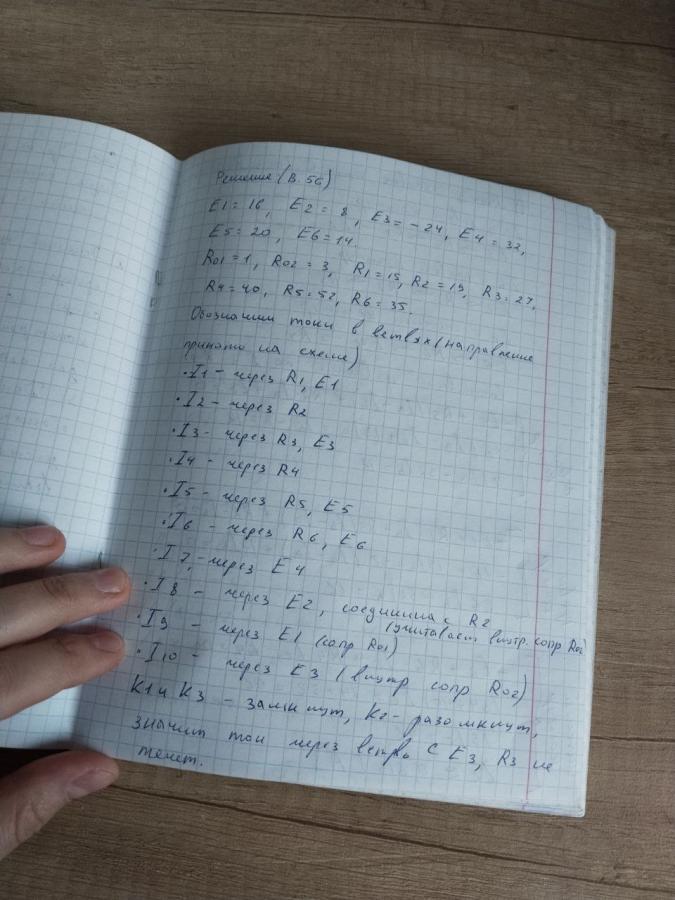 Решение (В. 56)
E1 = 16, E2 = 8, E3 = -24, E4 = 32,
E5 = 20, E6 = 14.
R01 = 1, R02 = 3, R1 = 15, R2 = 19, R3 = 27,
R4 = 40, R5 = 52, R6 = 35.
Обозначим токи в ветвях (направление
принято на схеме)
• I1 - через R1, E1
• I2 - через R2
• I3 - через R3, E3
• I4 - через R4
• I5 - через R5, E5
• I6 - через R6, E6
• I7 - через E4
• I8 - через E2, соединина с R2
(учитывает внутр. сопр R02)
• I9 - через E1 (сопр R01)
• I10 - через E3 (внутр сопр R02)
K1 и K3 - замкнут, K2 - разомкнут,
значит ток через ветвь с E3, R3 не
течет.